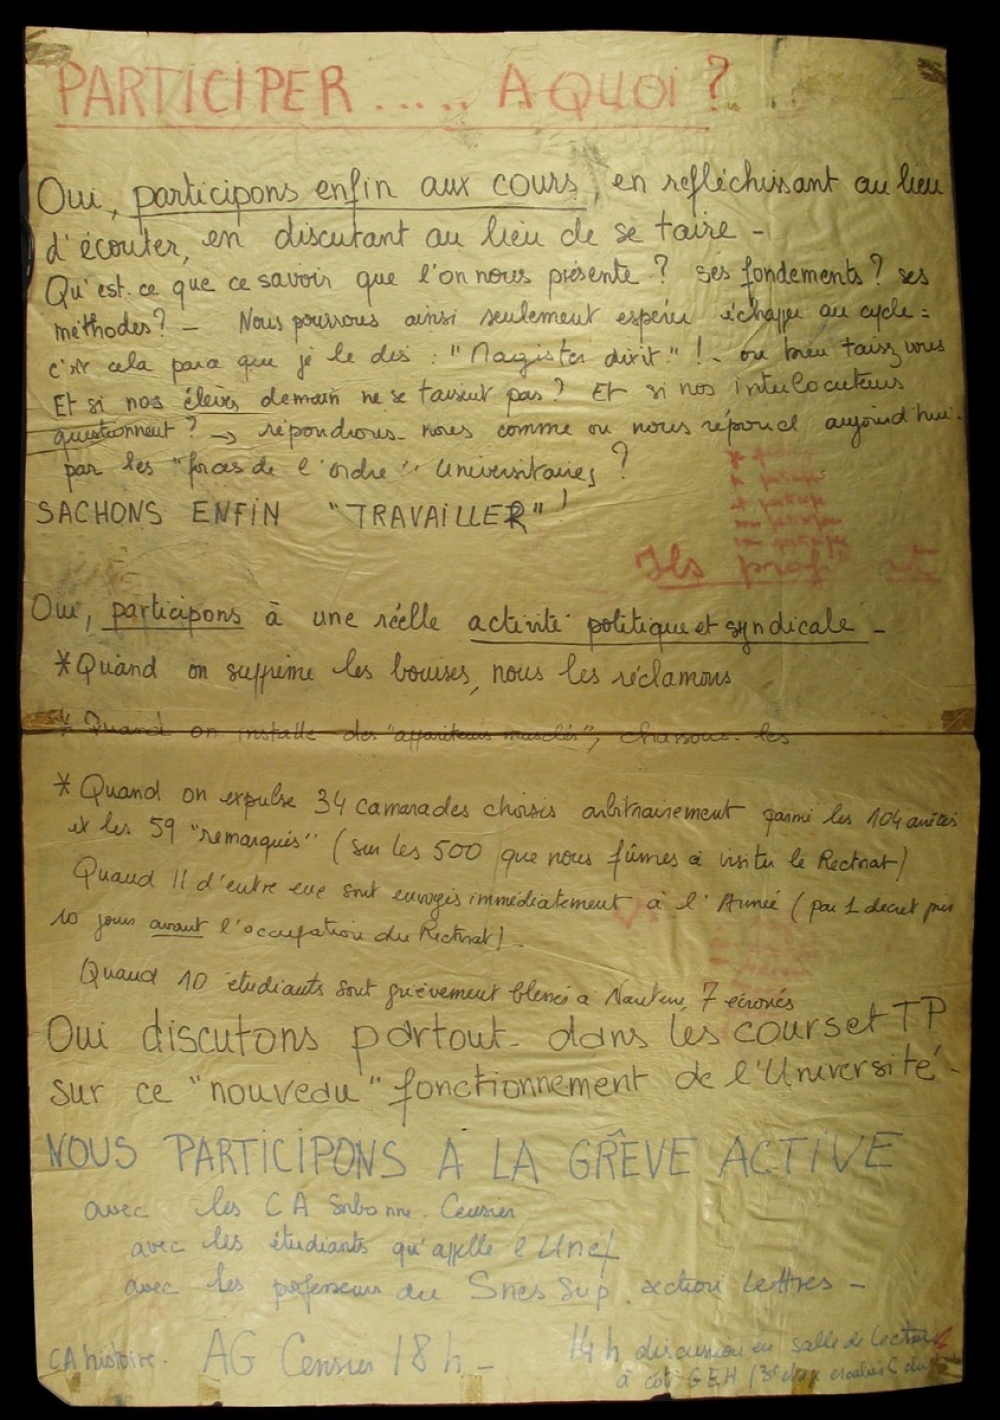 PARTICIPER ..... A QUOI ?
Oui, participons enfin aux cours, en refléchissant au lieu
d'écouter, en discutant au lieu de se taire -
Qu'est-ce que ce savoir que l'on nous présente ? ses fondements ? ses
méthodes ? - Nous pouvons ainsi seulement espérer échapper au cycle :
c'est cela parce que je le dis : "Magister dixit" ! - ou bien taisez vous
Et si nos élèves demain ne se taisent pas ? Et si nos interlocuteurs
questionnent ? → répondrons-nous comme on nous répond aujourd'hui
par les "forces de l'ordre" universitaires ?
SACHONS ENFIN "TRAVAILLER" !
je participe
tu participes
il participe
nous participons
vous participez
Ils prof
Oui, participons à une réelle activité politique et syndicale -
* Quand on supprime les bourses, nous les réclamons
* Quand on installe des "appariteurs musclés", chassons-les
* Quand on expulse 34 camarades choisis arbitrairement parmi les 104 arrêtés
et les 59 "remarqués" (sur les 500 que nous fûmes à visiter le Rectorat)
Quand 11 d'entre eux sont envoyés immédiatement à l'Armée (par 1 décret pris
10 jours avant l'occupation du Rectorat) -
Quand 10 étudiants sont grièvement blessés à Nanterre, 7 écroués
Oui discutons partout - dans les cours et TP
sur ce "nouveau" fonctionnement de l'Université -
NOUS PARTICIPONS A LA GRÊVE ACTIVE
avec les CA Sorbonne. Censier
avec les étudiants qu'appelle l'Unef
avec les professeurs du Snes Sup. section Lettres -
CA histoire. AG Censier 18 h - 14 h discussion en salle de lecture
à côté GEH (3e étage escalier C